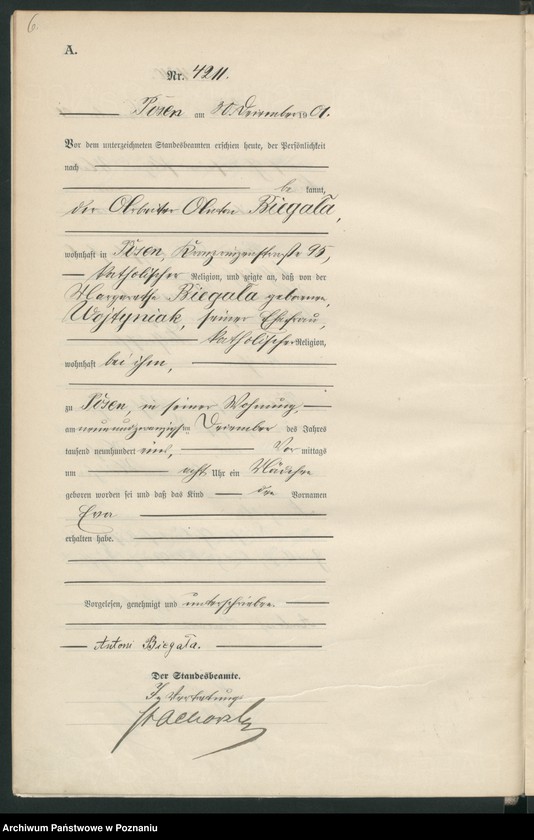 6.
A.
Nr. 4211.
Posen am 30 Dezember 1901.
Vor dem unterzeichneten Standesbeamten erschien heute, der Persönlichkeit
nach
be kannt,
der Arbeiter Anton Biegała,
wohnhaft in Posen, 95,
katholischer Religion, und zeigte an, daß von der
Margarethe Biegała geborenen
Wojtyniak, seiner Ehefrau,
katholischer Religion,
wohnhaft bei ihm,
zu Posen, in seiner Wohnung,
am neunundzwanzigsten Dezember des Jahres
tausend neunhundert eins, Vor mittags
um acht Uhr ein Mädchen
geboren worden sei und daß das Kind den Vornamen
Eva
erhalten habe.
Vorgelesen, genehmigt und unterschrieben.
Antoni Biegała.
Der Standesbeamte.
In Vertretung
Archiwum Państwowe w Poznaniu